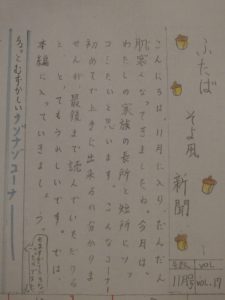 ふたば そよ風 新聞
11月号 VOL.17
こんにちは。11月に入り、だんだん
肌寒くなってきましたね。今月は、
わたしの家族の長所と短所につい
て
書きたいと思います。こんなコーナー
初めてで上手に出来るか分かりま
せんが、最後まで読んでいただける
と、とってもうれしいです。では、
本編に入っていきましょう。
ちょっとむずかしいナゾナゾコーナー